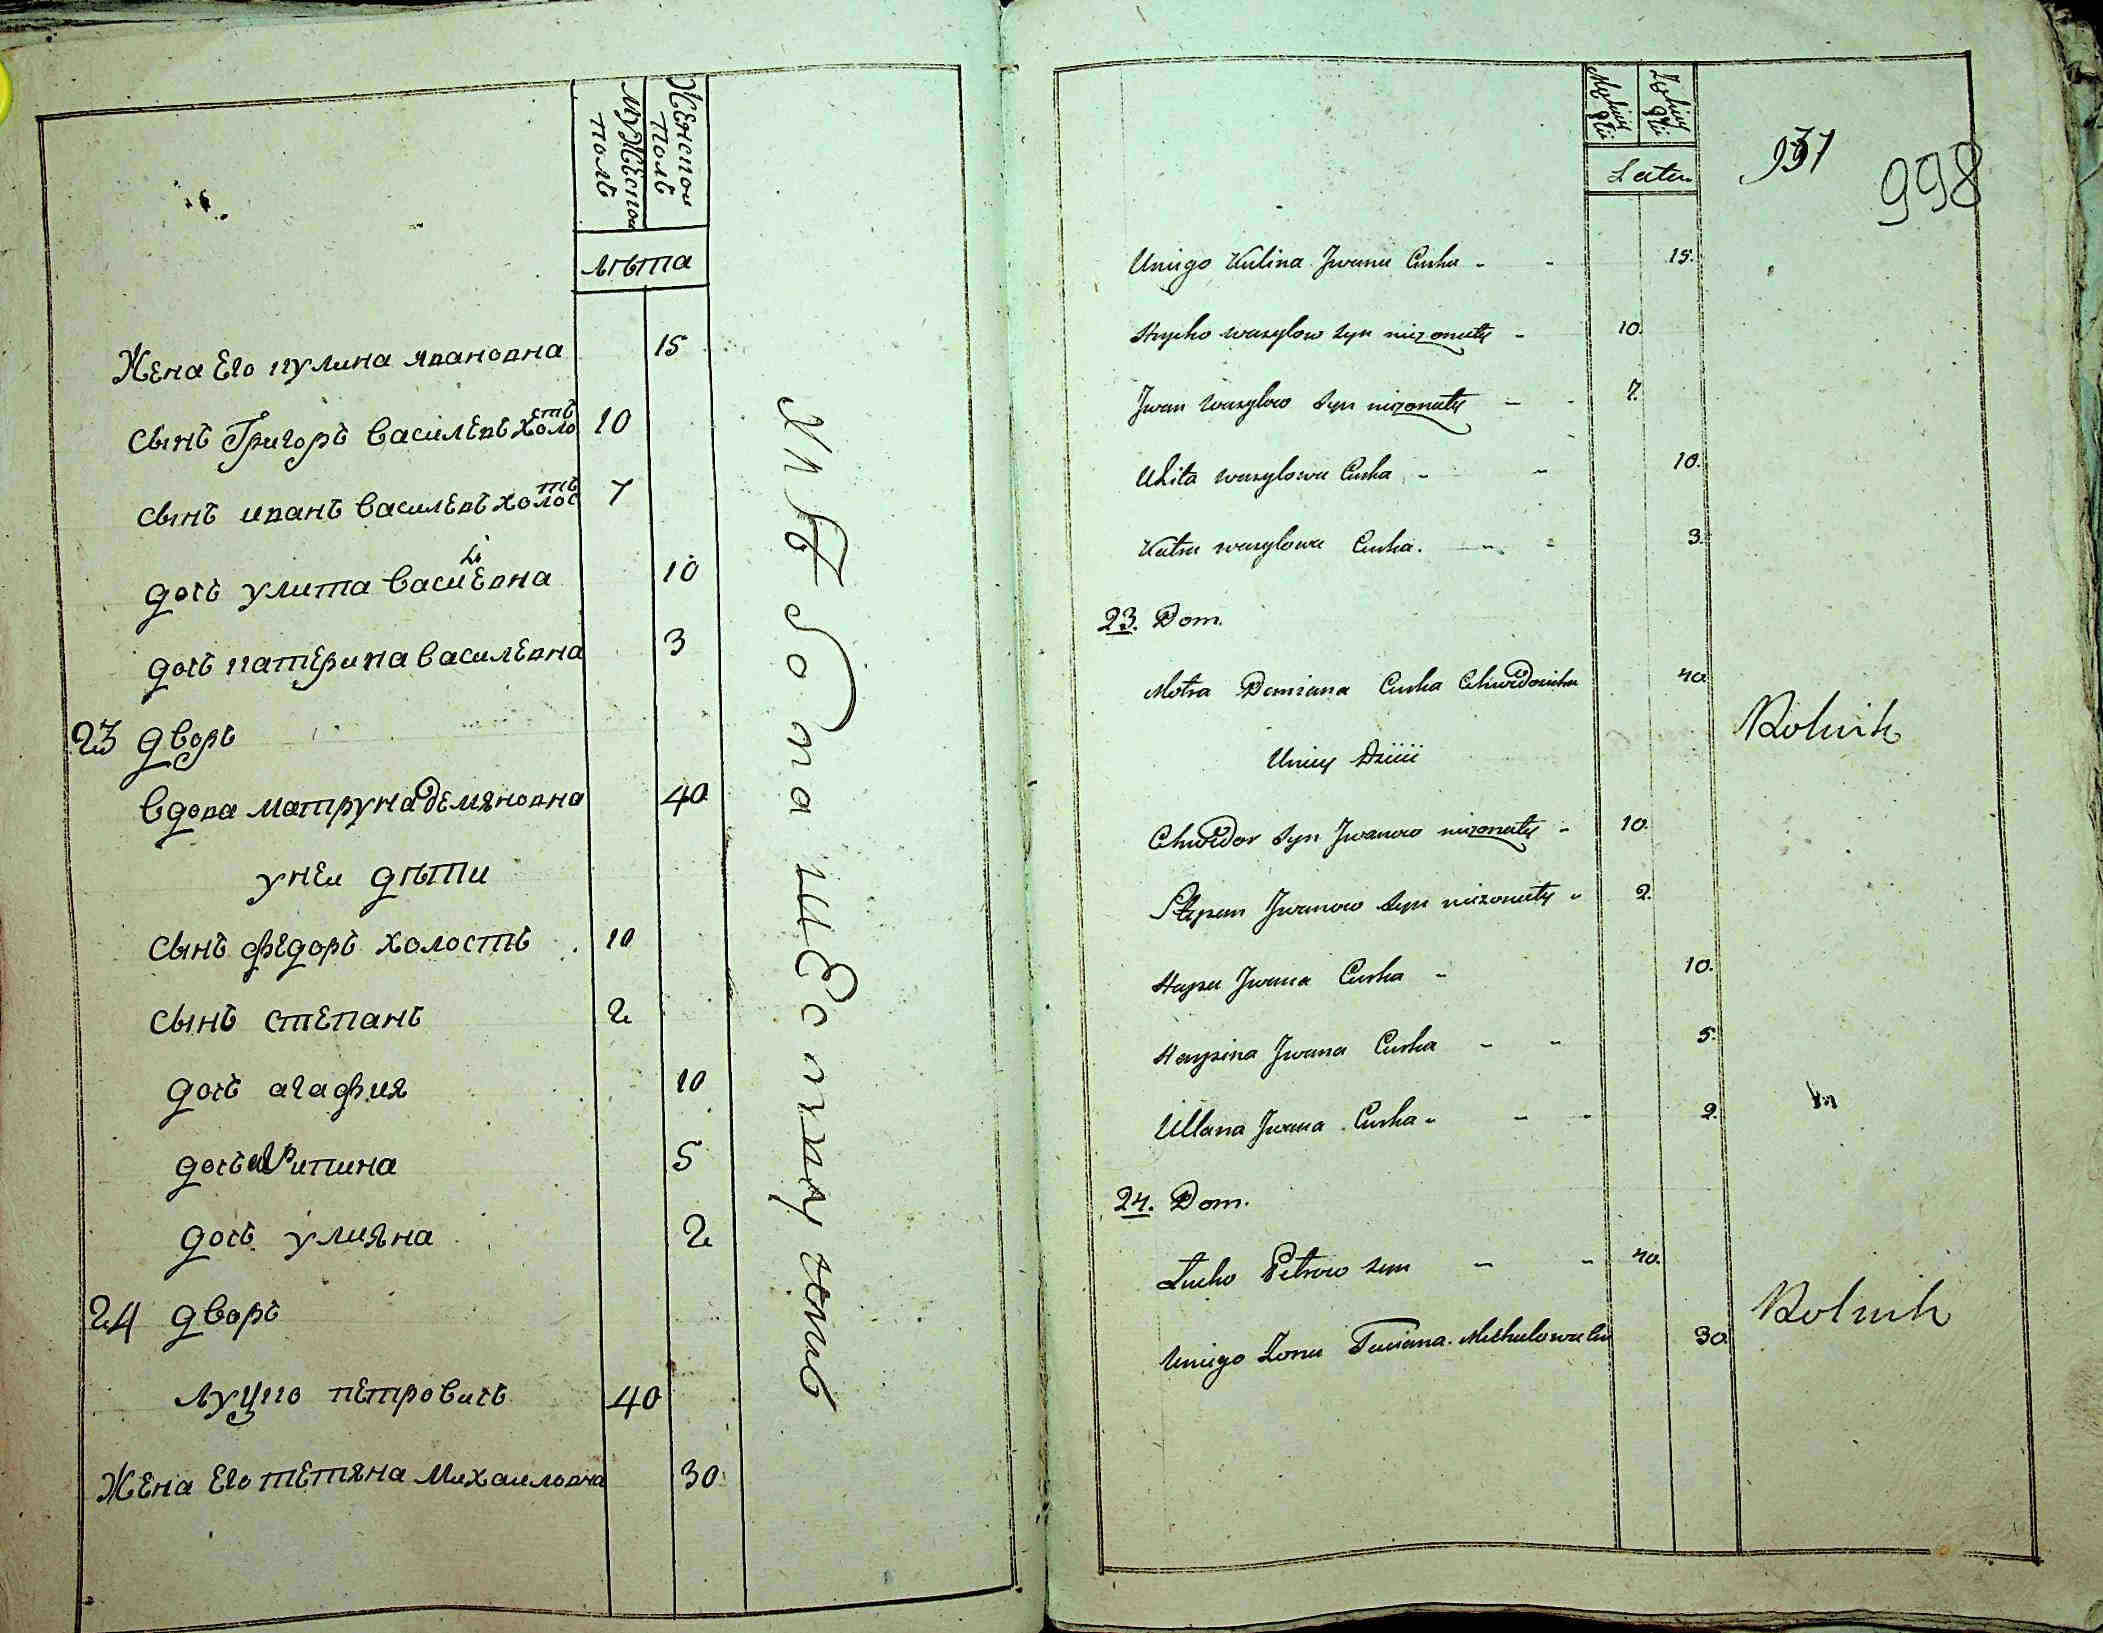 мужескои полъ
женскои полъ
лѣта
Жена Его кулина Ивановна 15
сынъ Григоръ Василевъ холостъ 10
сынъ иванъ Василевъ холостъ 7
дочъ улита Василевна 10
дочъ катерина Василевна 3
23 дворъ
Вдова матруна демяновна 40
у неи дѣти
сынъ федоръ холостъ 10
сынъ степанъ 2
дочъ агафия 10
дочъ
дочъ улияна 2
24 дворъ
луцко петровичъ 40
Жена Его тетяна Михаиловна 30
хлѣбопашеству
Męskiey płci
Żeńskiey płci
Lata
931
998
Uniego Kulina Jwana Curka 15.
Hrycko wasylow syn niezonaty 10.
Jwan wasylow syn niezonaty 7.
Ulita wasylowa Curka 10.
Katra wasylowa Curka. 3.
23. Dom.
Motra Demiana Curka 40
Uniey Dzieci
Chwedor syn Jwanow niezonaty 10.
Stepan Jwanow syn niezonaty 2.
Hapa Jwana Curka 10.
Jwana Curka 5.
Ullana Jwana Curka 2.
Rolnik
24. Dom.
Łucko Petrow syn 40.
Uniego Zona Taciana Michałowa 30
Rolnik